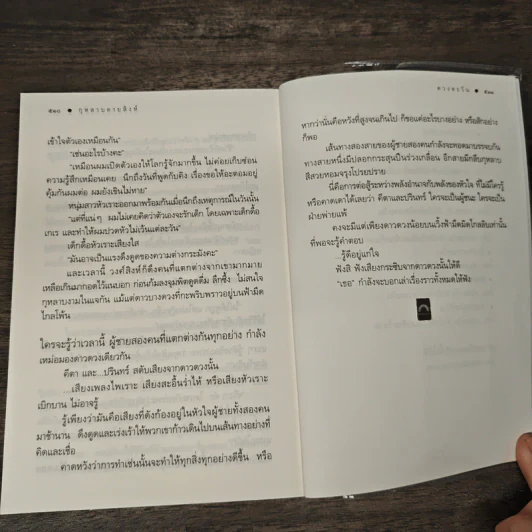 ๕๒๐ ● กุหลาบลายสิงห์
เข้าใจตัวเองเหมือนกัน"
"เช่นอะไรบ้างคะ"
"เหมือนผมเปิดตัวเองให้โลกรู้จักมากขึ้น ไม่ค่อยเก็บซ่อน
ความรู้สึกเหมือนเคย นึกถึงวันที่พูดกับคิง เรื่องขอให้อะตอมอยู่
คุ้มกันผมต่อ ผมยังเขินไม่หาย"
หนุ่มสาวหัวเราะออกมาพร้อมกันเมื่อนึกถึงเหตุการณ์ในวันนั้น
"แต่ที่แน่ๆ ผมไม่เคยคิดว่าตัวเองจะรักเด็ก โดยเฉพาะเด็กดื้อ
เกเร และทำให้ผมปวดหัวไม่เว้นแต่ละวัน"
เด็กดื้อหัวเราะเสียงใส
"มันอาจเป็นแรงดึงดูดของความต่างกระมังคะ"
และเวลานี้ วงศ์สิงห์ก็ดึงคนที่แตกต่างจากเขามากมาย
เหลือเกินมากอดไว้แนบอก ก่อนก้มลงจุมพิตดูดดื่ม ลึกซึ้ง ไม่สนใจ
กุหลาบงามในแจกัน แม้แต่ดาวบางดวงที่กะพริบพราวอยู่บนฟ้ามืด
ไกลโพ้น
ใครจะรู้ว่าเวลานี้ ผู้ชายสองคนที่แตกต่างกันทุกอย่าง กำลัง
เหม่อมองดาวดวงเดียวกัน
คีตา และ...ปรินทร์ สดับเสียงจากดาวดวงนั้น
...เสียงเพลงไพเราะ เสียงสะอื้นร่ำไห้ หรือเสียงหัวเราะ
เบิกบาน ไม่อาจรู้
รู้เพียงว่ามันคือเสียงที่ดังก้องอยู่ในหัวใจผู้ชายทั้งสองคน
มาช้านาน ดึงดูดและเร่งเร้าให้พวกเขาก้าวเดินไปบนเส้นทางอย่างที่
คิดและเชื่อ
คาดหวังว่าการทำเช่นนั้นจะทำให้ทุกสิ่งทุกอย่างดีขึ้น หรือ
ดวงตะวัน ● ๕๒๑
หากว่านั่นคือหวังที่สูงจนเกินไป ก็ขอแค่อะไรบางอย่าง หรือสักอย่าง
ก็พอ
เส้นทางสองสายของผู้ชายสองคนกำลังจะทอดมาบรรจบกัน
ทางสายหนึ่งมีปลอกกระสุนปืนร่วงเกลื่อน อีกสายมีกลีบกุหลาบ
สีสวยหอมจรุงโปรยปราย
นี่คือการต่อสู้ระหว่างพลังอำนาจกับพลังของหัวใจ ที่ไม่มีใครรู้
หรือคาดเดาได้เลยว่า คีตาและปรินทร์ ใครจะเป็นผู้ชนะ ใครจะเป็น
ฝ่ายพ่ายแพ้
คงจะมีแต่เพียงดาวดวงน้อยบนเวิ้งฟ้ามืดมิดไกลลิบเท่านั้น
ที่พอจะรู้คำตอบ
...รู้ดีอยู่แก่ใจ
ฟังสิ ฟังเสียงกระซิบจากดาวดวงนั้นให้ดี
"เธอ" กำลังจะบอกเล่าเรื่องราวทั้งหมดให้ฟัง